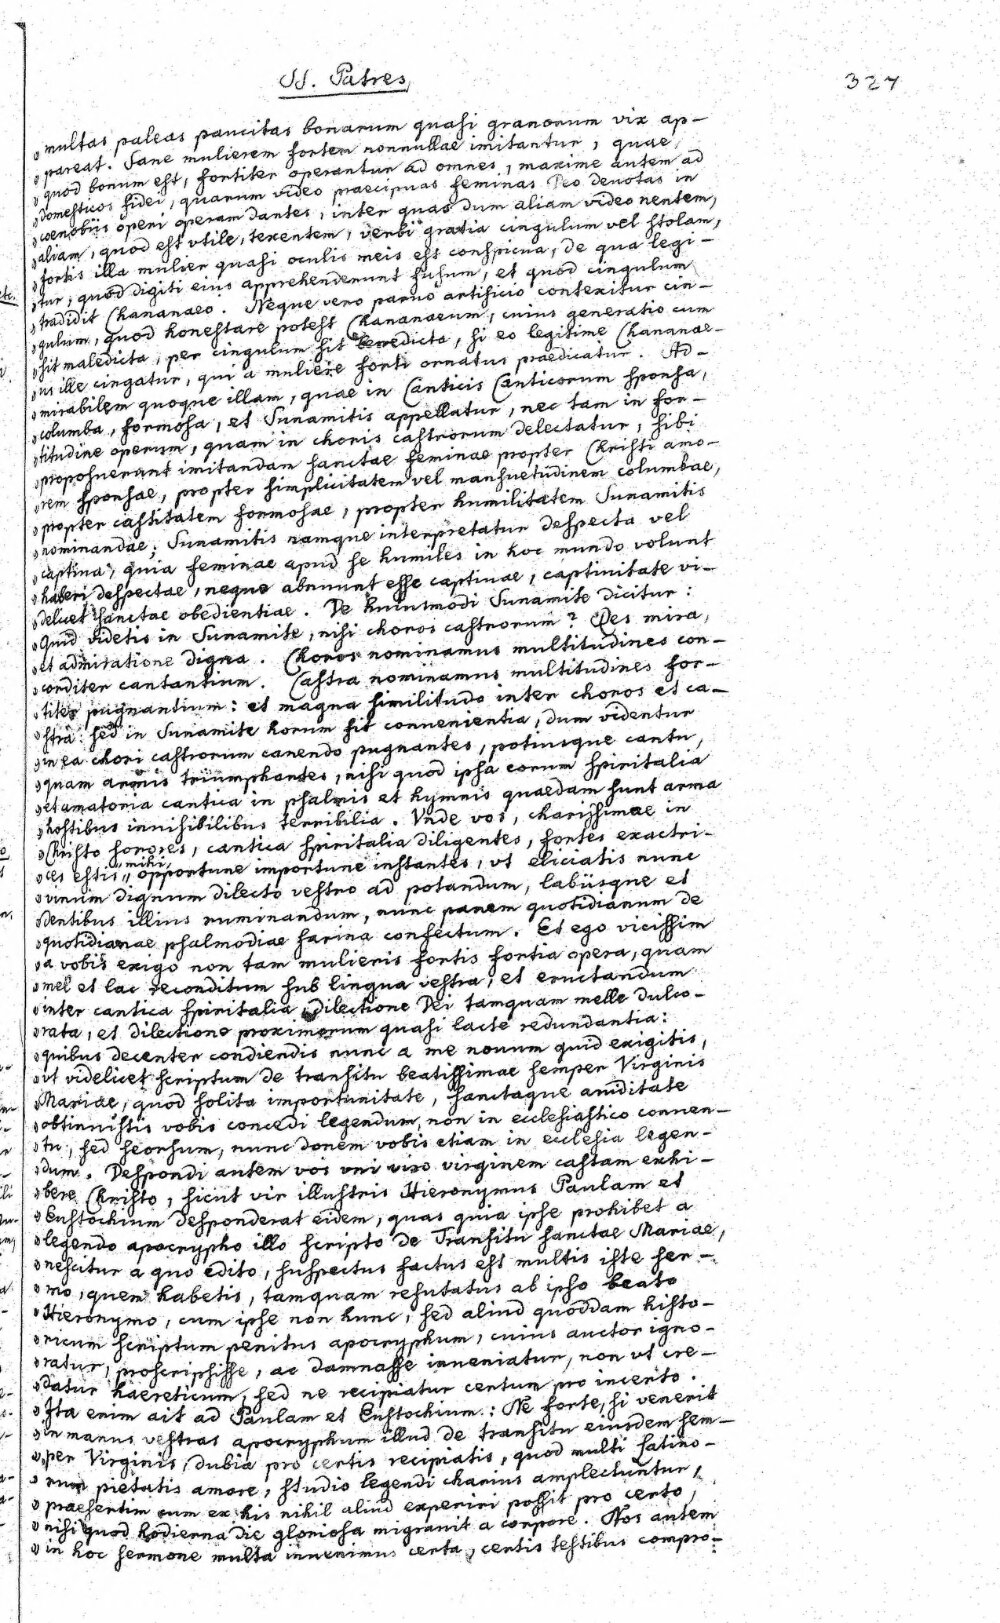 SS. Patres
327
» multas paleas paucitas bonarum quasi granorum vix ap-
» pareat. Sane mulierem fortem nonnullae imitantur, quae,
» quod bonum est, fortiter operantur ad omnes, maxime autem ad
» domesticos fidei, quarum video praecipuas feminas Deo devotas in
» coenobiis operi operam dantes, inter quas dum aliam video nentem,
» aliam, quod est vtile, texentem, verbi gratia cingulum vel stolam,
» fortis illa mulier quasi oculis meis est conspicua, de qua legi-
» tur, quod digiti eius apprehenderunt fusum, et quod cingulum
» tradidit Chananaeo. Neque vero paruo artificio contexitur cin-
» gulum, quod honestare potest Chananaeum, cuius generatio cum
» sit maledicta, per cingulum fit benedicta, si eo legitime Chananae-
» us ille cingatur, qui a muliere forti ornatus praedicatur. Ad-
» mirabilem quoque illam, quae in Canticis Canticorum sponsa,
» columba, formosa, et Sunamitis appellatur, nec tam in for-
» titudine operum, quam in choris castrorum delectatur, sibi
» proposuerunt imitandam sanctae feminae propter Christi amo-
» rem sponsae, propter simplicitatem vel mansuetudinem columbae,
» propter castitatem formosae, propter humilitatem Sunamitis
» nominandae; Sunamitis namque interpretatur despecta vel
» captiua, quia feminae apud se humiles in hoc mundo volunt
» haberi despectae, neque abnuunt esse captiuae, captiuitate vi-
» delicet sanctae obedientiae. De huiusmodi Sunamite dicitur:
» Quid videtis in Sunamite, nisi choros castrorum? Res mira,
» et admiratione digna. Choros nominamus multitudines con-
» corditer cantantium. Castra nominamus multitudines for-
» titer pugnantium: et magna similitudo inter choros et ca-
» stra: sed in Sunamite horum fit conuenientia, dum videntur
» in ea chori castrorum canendo pugnantes, potiusque cantu,
» quam armis triumphantes, nisi quod ipsa eorum spiritalia
» et amatoria cantica in psalmis et hymnis quaedam sunt arma
» hostibus inuisibilibus terribilia. Vnde vos, charissimae in
» Christo sorores, cantica spiritalia diligentes, fortes exactri-
» ces estis, mihi opportune importune instantes, vt eliciatis nunc
» vinum dignum dilecto vestro ad potandum, labiisque et
» dentibus illius ruminandum, nunc panem quotidianum de
» quotidianae psalmodiae farina confectum. Et ego vicissim
» a vobis exigo non tam mulieris fortis fortia opera, quam
» mel et lac reconditum sub lingua vestra, et eructandum
» inter cantica spiritalia dilectione Dei tamquam melle dulco-
» rata, et dilectione proximorum quasi lacte redundantia:
» quibus decenter condiendis nunc a me nouum quid exigitis,
» vt videlicet scriptum de transitu beatissimae semper Virginis
» Mariae, quod solita importunitate, sanctaque auiditate
» obtinuistis vobis concedi legendum, non in ecclesiastico conuen-
» tu, sed seorsum, nunc donem vobis etiam in ecclesia legen-
» dum. Despondi autem vos vni viro virginem castam exhi-
» bere Christo, sicut vir illustris Hieronymus Paulam et
» Eustochium desponderat eidem, quas quia ipse prohibet a
» legendo apocrypho illo scripto de Transitu sanctae Mariae,
» nescitur a quo edito, suspectus factus est multis iste ser-
» mo, quem habetis, tamquam refutatus ab ipso beato
» Hieronymo, cum ipse non hunc, sed aliud quoddam histo-
» ricum scriptum penitus apocryphum, cuius auctor igno-
» ratur, proscripsisse, ac damnasse inueniatur, non vt cre-
» datur haereticum, sed ne recipiatur certum pro incerto.
» Ita enim ait ad Paulam et Eustochium: Ne forte, si venerit
» in manus vestras apocryphum illud de transitu eiusdem sem-
» per Virginis, dubia pro certis recipiatis, quod multi Latino-
» rum pietatis amore, studio legendi charius amplectuntur,
» praesertim cum ex his nihil aliud experiri possit pro certo,
» nisi quod hodierna die gloriosa migrauit a corpore. Nos autem
» in hoc sermone multa inuenimus certa, certis testibus compro-